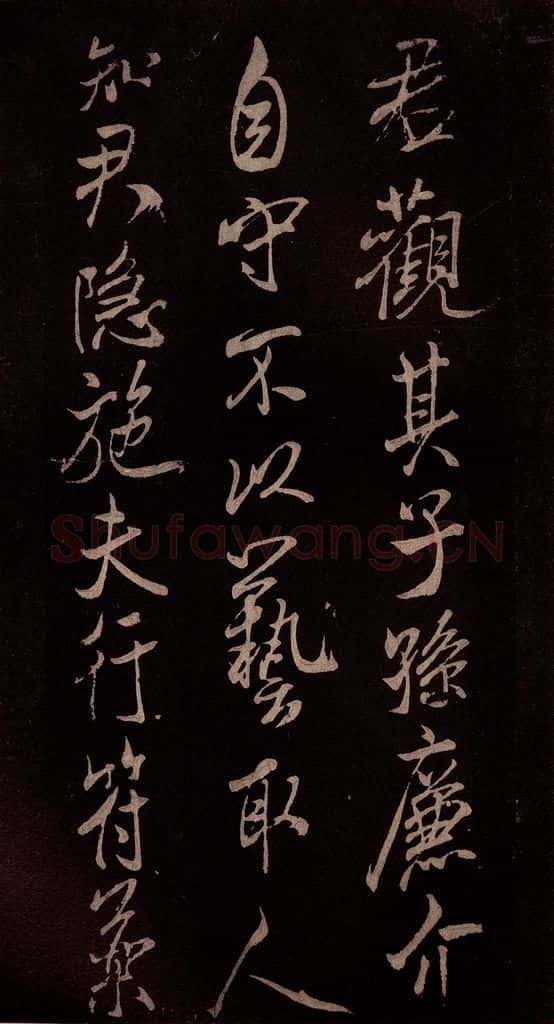 君觀其子孫廉介
自守不以藝取人
知君隱施夫行符藥
Shufawang.CN